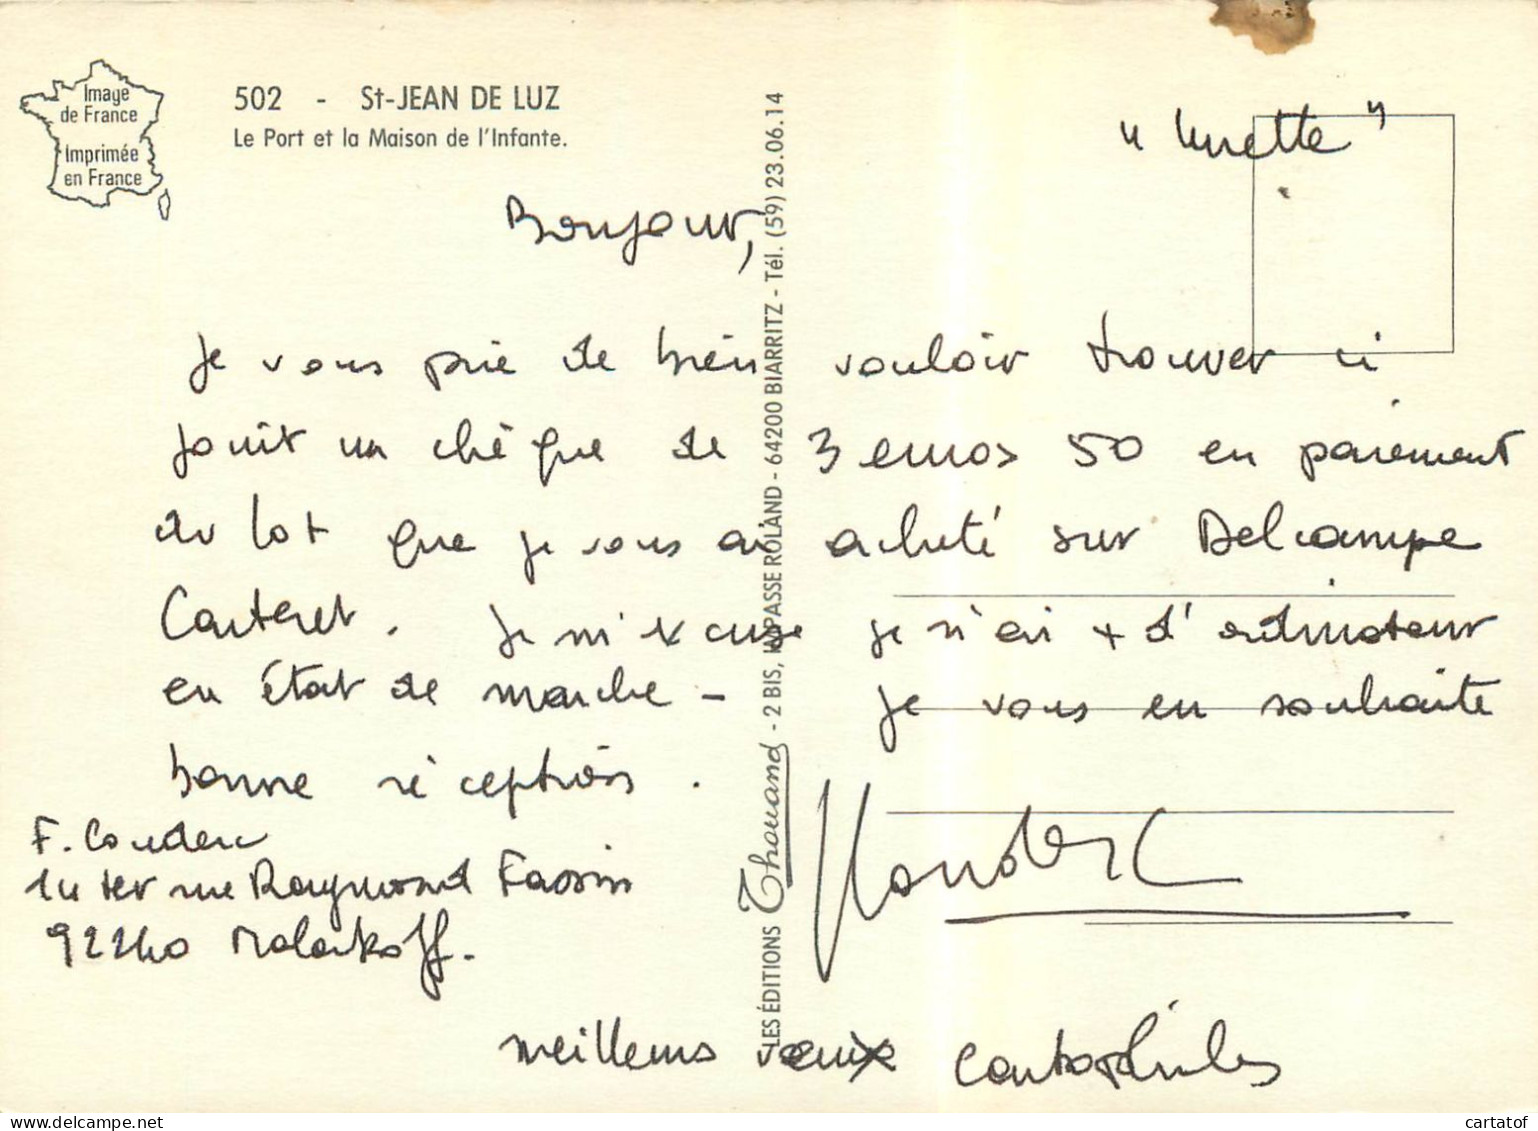 Image
de France
Imprimée
en France
502 - St-JEAN DE LUZ
Le Port et la Maison de l'Infante.
LES ÉDITIONS Thouand - 2 BIS, IMPASSE ROLAND - 64200 BIARRITZ - Tél. (59) 23.06.14
Bonjour,
je vous prie de bien vouloir trouver ci
joint un chèque de 3 euros 50 en paiement
du lot que je vous ai acheté sur Delcampe
Carteret. Je m'excuse je n'ai + d'ordinateur
en état de marche - je vous en souhaite
bonne réception.
F. Couderc
14 ter rue Raymond Fassin
92240 Malakoff.
meilleurs vœux cartophiles
delcampe.net
cartatof